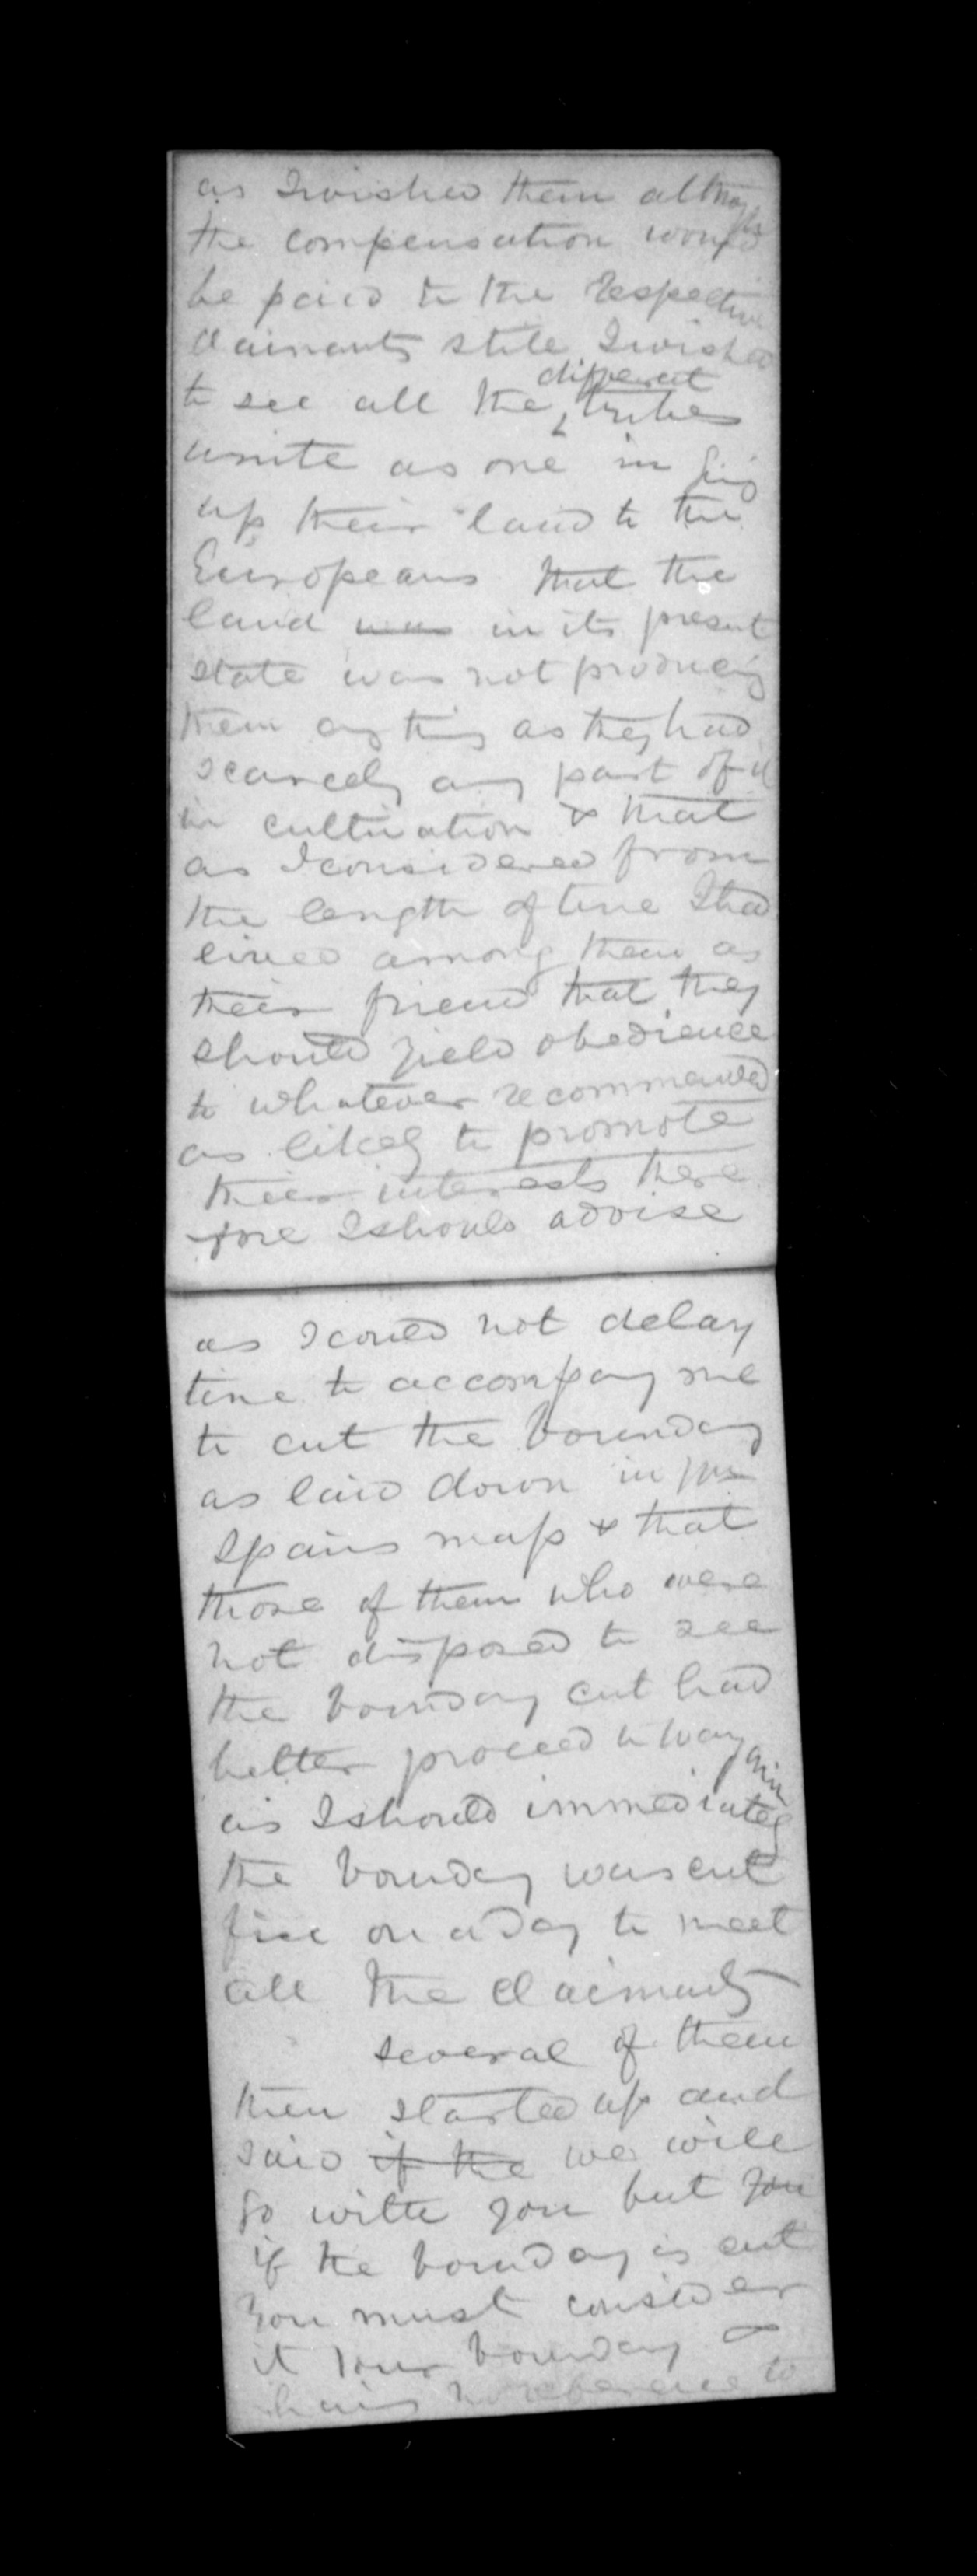 as I wished them although
the compensation would
be paid to the respective
claimants still I wished
to see all the different tribes
unite as one in
up their land to the
Europeans that the
land was in its present
state was not producing
them any thing as they had
scarcely any part of it
in cultivation & that
as I considered from
the length of time I had
lived among them as
their friend that they
should yield obedience
to whatever recommended
as likely to promote
their interests there
fore I should advise
as I could not delay
time to accompany me
to cut the boundary
as laid down in
Spains map & that
those of them who were
not disposed to see
the boundary cut had
better proceed to Wanganui
as I should immediately
the boundary was cut
fix on a day to meet
all the claimants
several of them
then started up and
said if the we will
go with you but you
if the boundary is cut
you must consider
it your boundary &
having no reference to